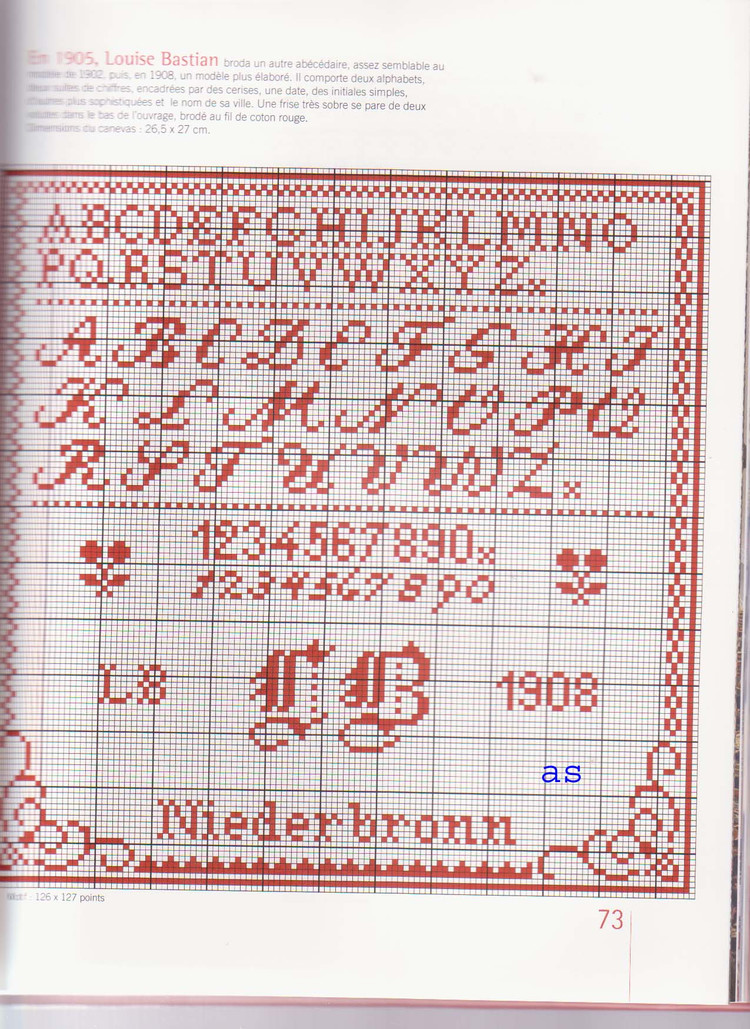 En 1905, Louise Bastian broda un autre abécédaire, assez semblable au
modèle de 1902, puis, en 1908, un modèle plus élaboré. Il comporte deux alphabets,
deux suites de chiffres, encadrées par des cerises, une date, des initiales simples,
d'autres plus sophistiquées et le nom de sa ville. Une frise très sobre se pare de deux
volutes dans le bas de l'ouvrage, brodé au fil de coton rouge.
Dimensions du canevas : 26,5 x 27 cm.
ABCDEFGHIJKLMNO
PQRSTUVWXYZ
ABCDEFGHI
KLMNOPQ
RSTUVWZ
1234567890
1234567890
LB LB 1908
as
Niederbronn
Motif : 126 x 127 points
73